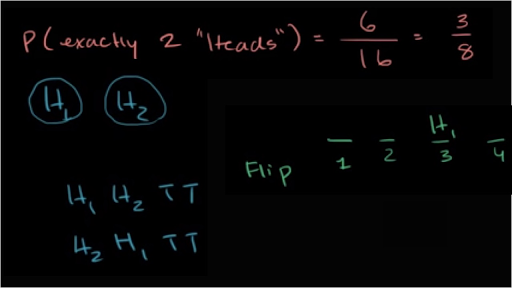 P(exactly 2 "Heads") = 6/16 = 3/8
H₁ H₂
H₁
Flip 1 2 3 4
H₁ H₂ T T
H₂ H₁ T T